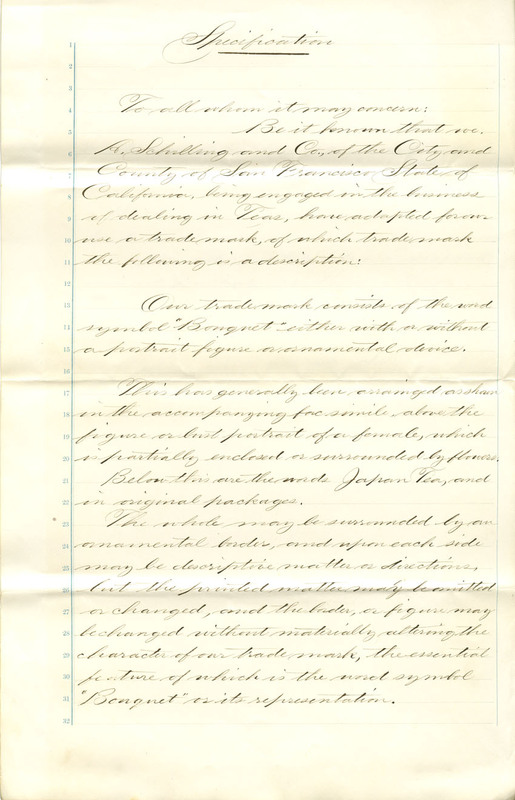 Specification
1
2
3
4 To all whom it may concern:
5 Be it known that we,
6 A. Schilling and Co., of the City and
7 County of San Francisco State of
8 California, being engaged in the business
9 of dealing in Teas, have adopted for our
10 use a trade mark, of which trade mark
11 the following is a description:
12
13 Our trade mark consists of the word
14 symbol "Bouquet" either with or without
15 a portrait figure or ornamental device.
16
17 This has generally been arranged as shown
18 in the accompanying fac simile, above the
19 figure or bust portrait of a female, which
20 is partially enclosed or surrounded by flowers.
21 Below this are the words Japan Tea, and
22 in original packages.
23 The whole may be surrounded by an
24 ornamental border, and upon each side
25 may be descriptive matter or directions,
26 but the printed matter may be omitted
27 or changed, and the border, or figure may
28 be changed without materially altering the
29 character of our trade mark, the essential
30 feature of which is the word symbol
31 "Bouquet" or its representation.
32